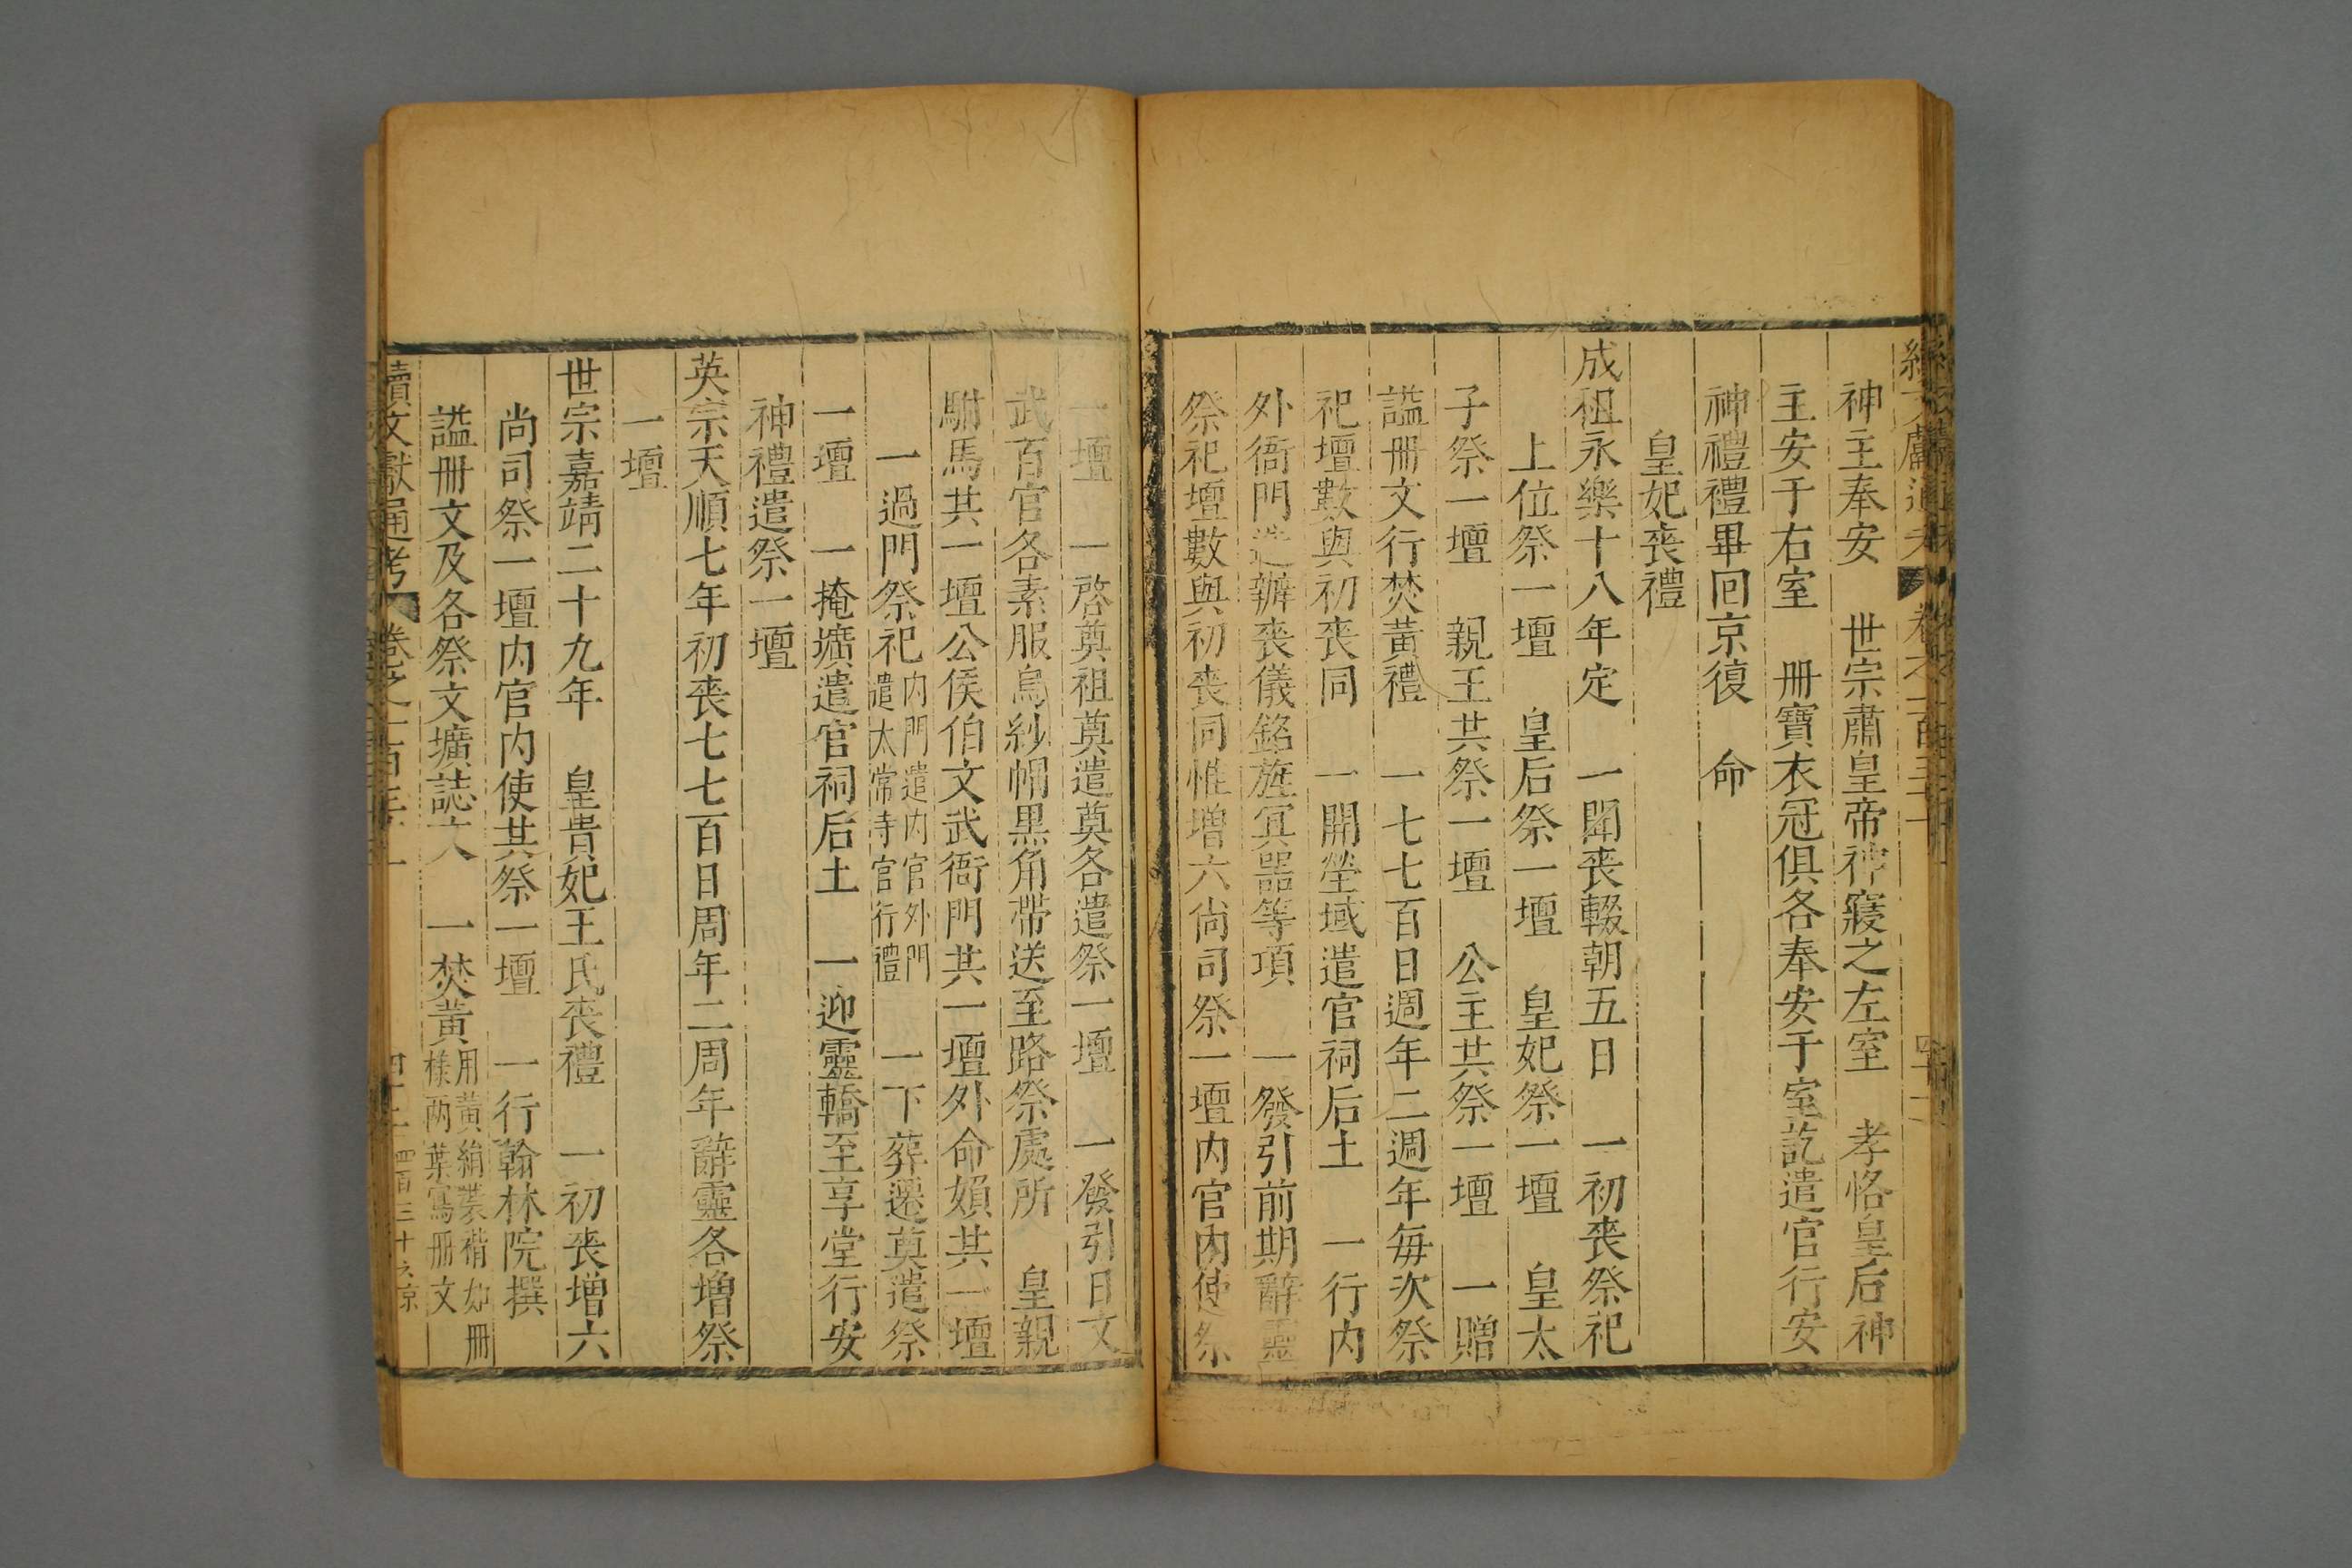 神主奉安　世宗肅皇帝神寢之左室　孝恪皇后神
主安于右室　冊寶衣冠俱各奉安于室訖遣官行安
神禮禮畢回京復　命
皇妃喪禮
成祖永樂十八年定　一聞喪輟朝五日　一初喪祭祀
上位祭一壇　皇后祭一壇　皇妃祭一壇　皇太
子祭一壇　親王共祭一壇　公主共祭一壇　一贈
謚冊文行焚黃禮　一七七百日週年二週年每次祭
祀壇數與初喪同　一開塋域遣官祠后土　一行內
外衙門造辦喪儀銘旌冥器等項　一發引前期辭靈
祭祀壇數與初喪同惟增六尚司祭一壇内官内使祭
一壇　一啓奠祖奠遣奠各遣祭一壇　一發引日文
武百官各素服烏紗帽黑角帶送至路祭處所　皇親
駙馬共一壇公侯伯文武衙門共一壇外命婦共一壇
一過門祭祀内門遣内官外門遣太常寺官行禮　一下葬遷奠遣祭
一壇　一掩壙遣官祠后土　一迎靈轎至享堂行安
神禮遣祭一壇
英宗天順七年初喪七七百日周年二周年辭靈各增祭
一壇
世宗嘉靖二十九年　皇貴妃王氏喪禮　一初喪增六
尚司祭一壇内官内使共祭一壇　一行翰林院撰
謚冊文及各祭文壙誌文　一焚黃用黃絹裱褙如冊樣兩葉寫冊文
續文獻通考　卷之一百三十